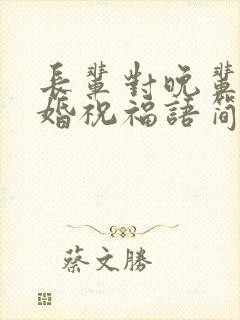 長輩對晚輩
婚祝福語简
蔡文勝